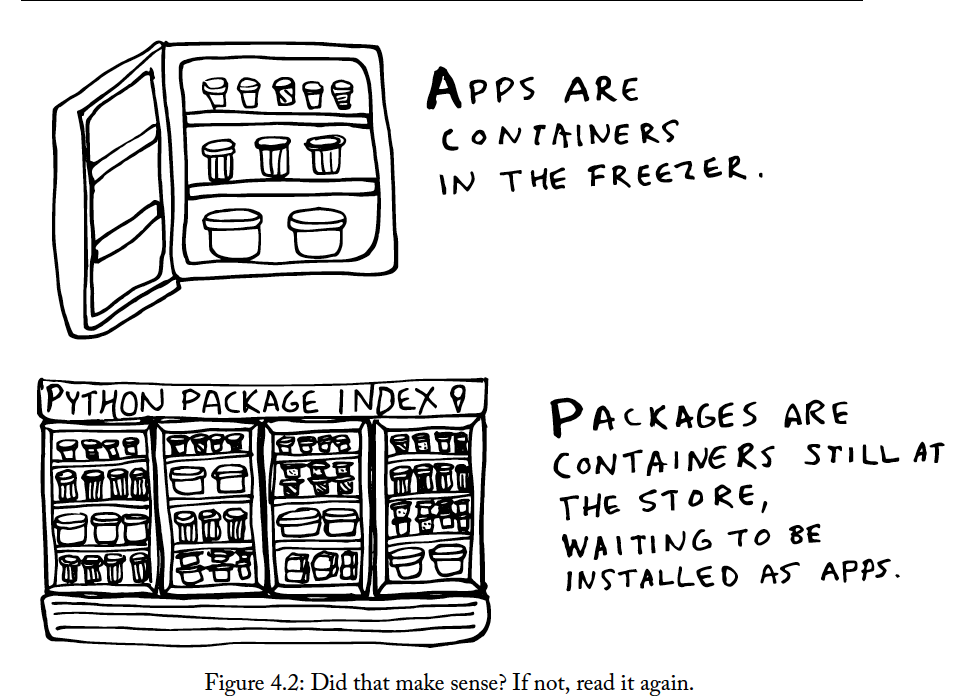 APPS ARE
CONTAINERS
IN THE FREEZER.
PYTHON PACKAGE INDEX
PACKAGES ARE
CONTAINERS STILL AT
THE STORE,
WAITING TO BE
INSTALLED AS APPS.
Figure 4.2: Did that make sense? If not, read it again.